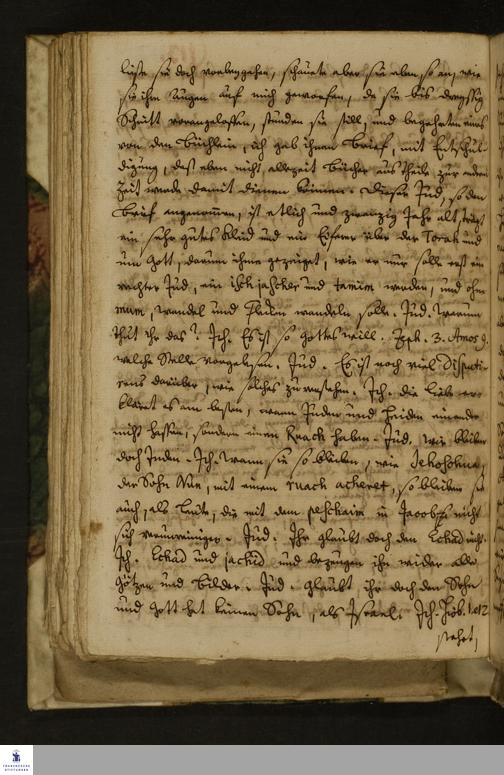 ließe sie doch vorbeygehen, schauete aber sie eben so an, wie
sie ihre Augen auf mich geworfen, da sie bis dreyßig
Schritt vorangeloffen, stunden sie still, und begehrten eines
von den Büchlein, ich gab ihnen Brief, mit Entschul-
digung, daß eben nicht allezeit Bücher austheile, zur andern
Zeit werde damit dienen können. Dieser Jud, so den
Brief angenommen, ist etlich und zwanzig Jahr alt, trägt
ein sehr gutes Kleid und ein Eiferer über der Torah und
um Gott, darum ihme gezeiget, wie er nur solle erst ein
rechter Jud, ein isch jascher und tamim werden, und ohne
mum, wandel und Fladen wandeln solle. Jud. Warum
thut ihr das? Ich. Es ist so Gottes will. Zeph. 3. Amos 9.
welche Stelle vorgelesen. Jud. Es ist noch viel Disputi-
rens darüber, wie solches zu verstehen. Ich. die Lieb er-
kläret es am besten, wann Juden und Heiden einander
nicht hassen, sondern einen Ruach haben. Jud. Wir bleiben
doch Juden. Ich. Wann sie so bleiben, wie Jehoschua,
der Sohn Nun, mit einem ruach acheret, so bleiben sie
auch, als Leute, die mit dem peschaim in Jacob sich nicht
sich verunreinigen. Jud. Ihr glaubt doch den Echad nicht.
Ich. Echad und jachid und bezeugen ihn wider alle
Götzen und Bilder. Jud. Glaubt ihr doch den Sohn
und Gott hat keinen Sohn, als Israel. Ich. Hiob. 1. et 2
stehet,
FRANCKESCHE
STIFTUNGEN